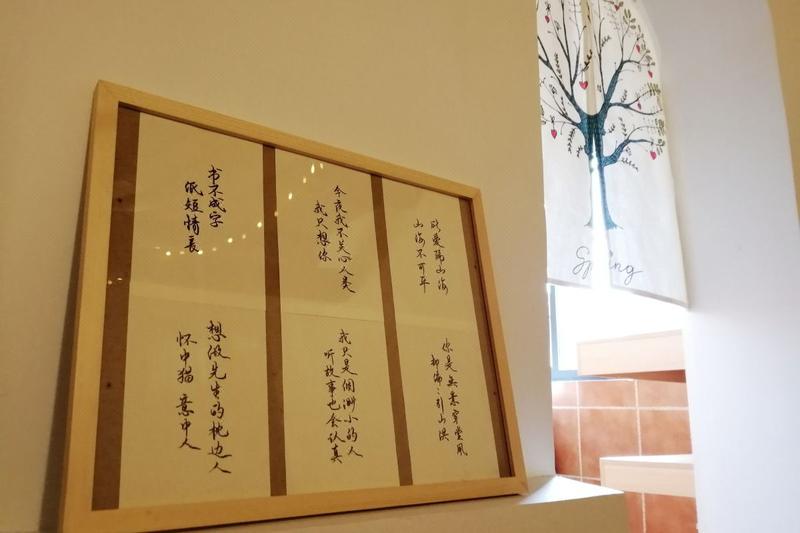 书不成字
纸短情长
今夜我不关心人类
我只想你
所爱隔山海
山海不可平
想做先生的枕边人
怀中猫 意中人
我只是個渺小的人
听故事也会认真
你是無意穿堂風
却偏々引山洪
Spring